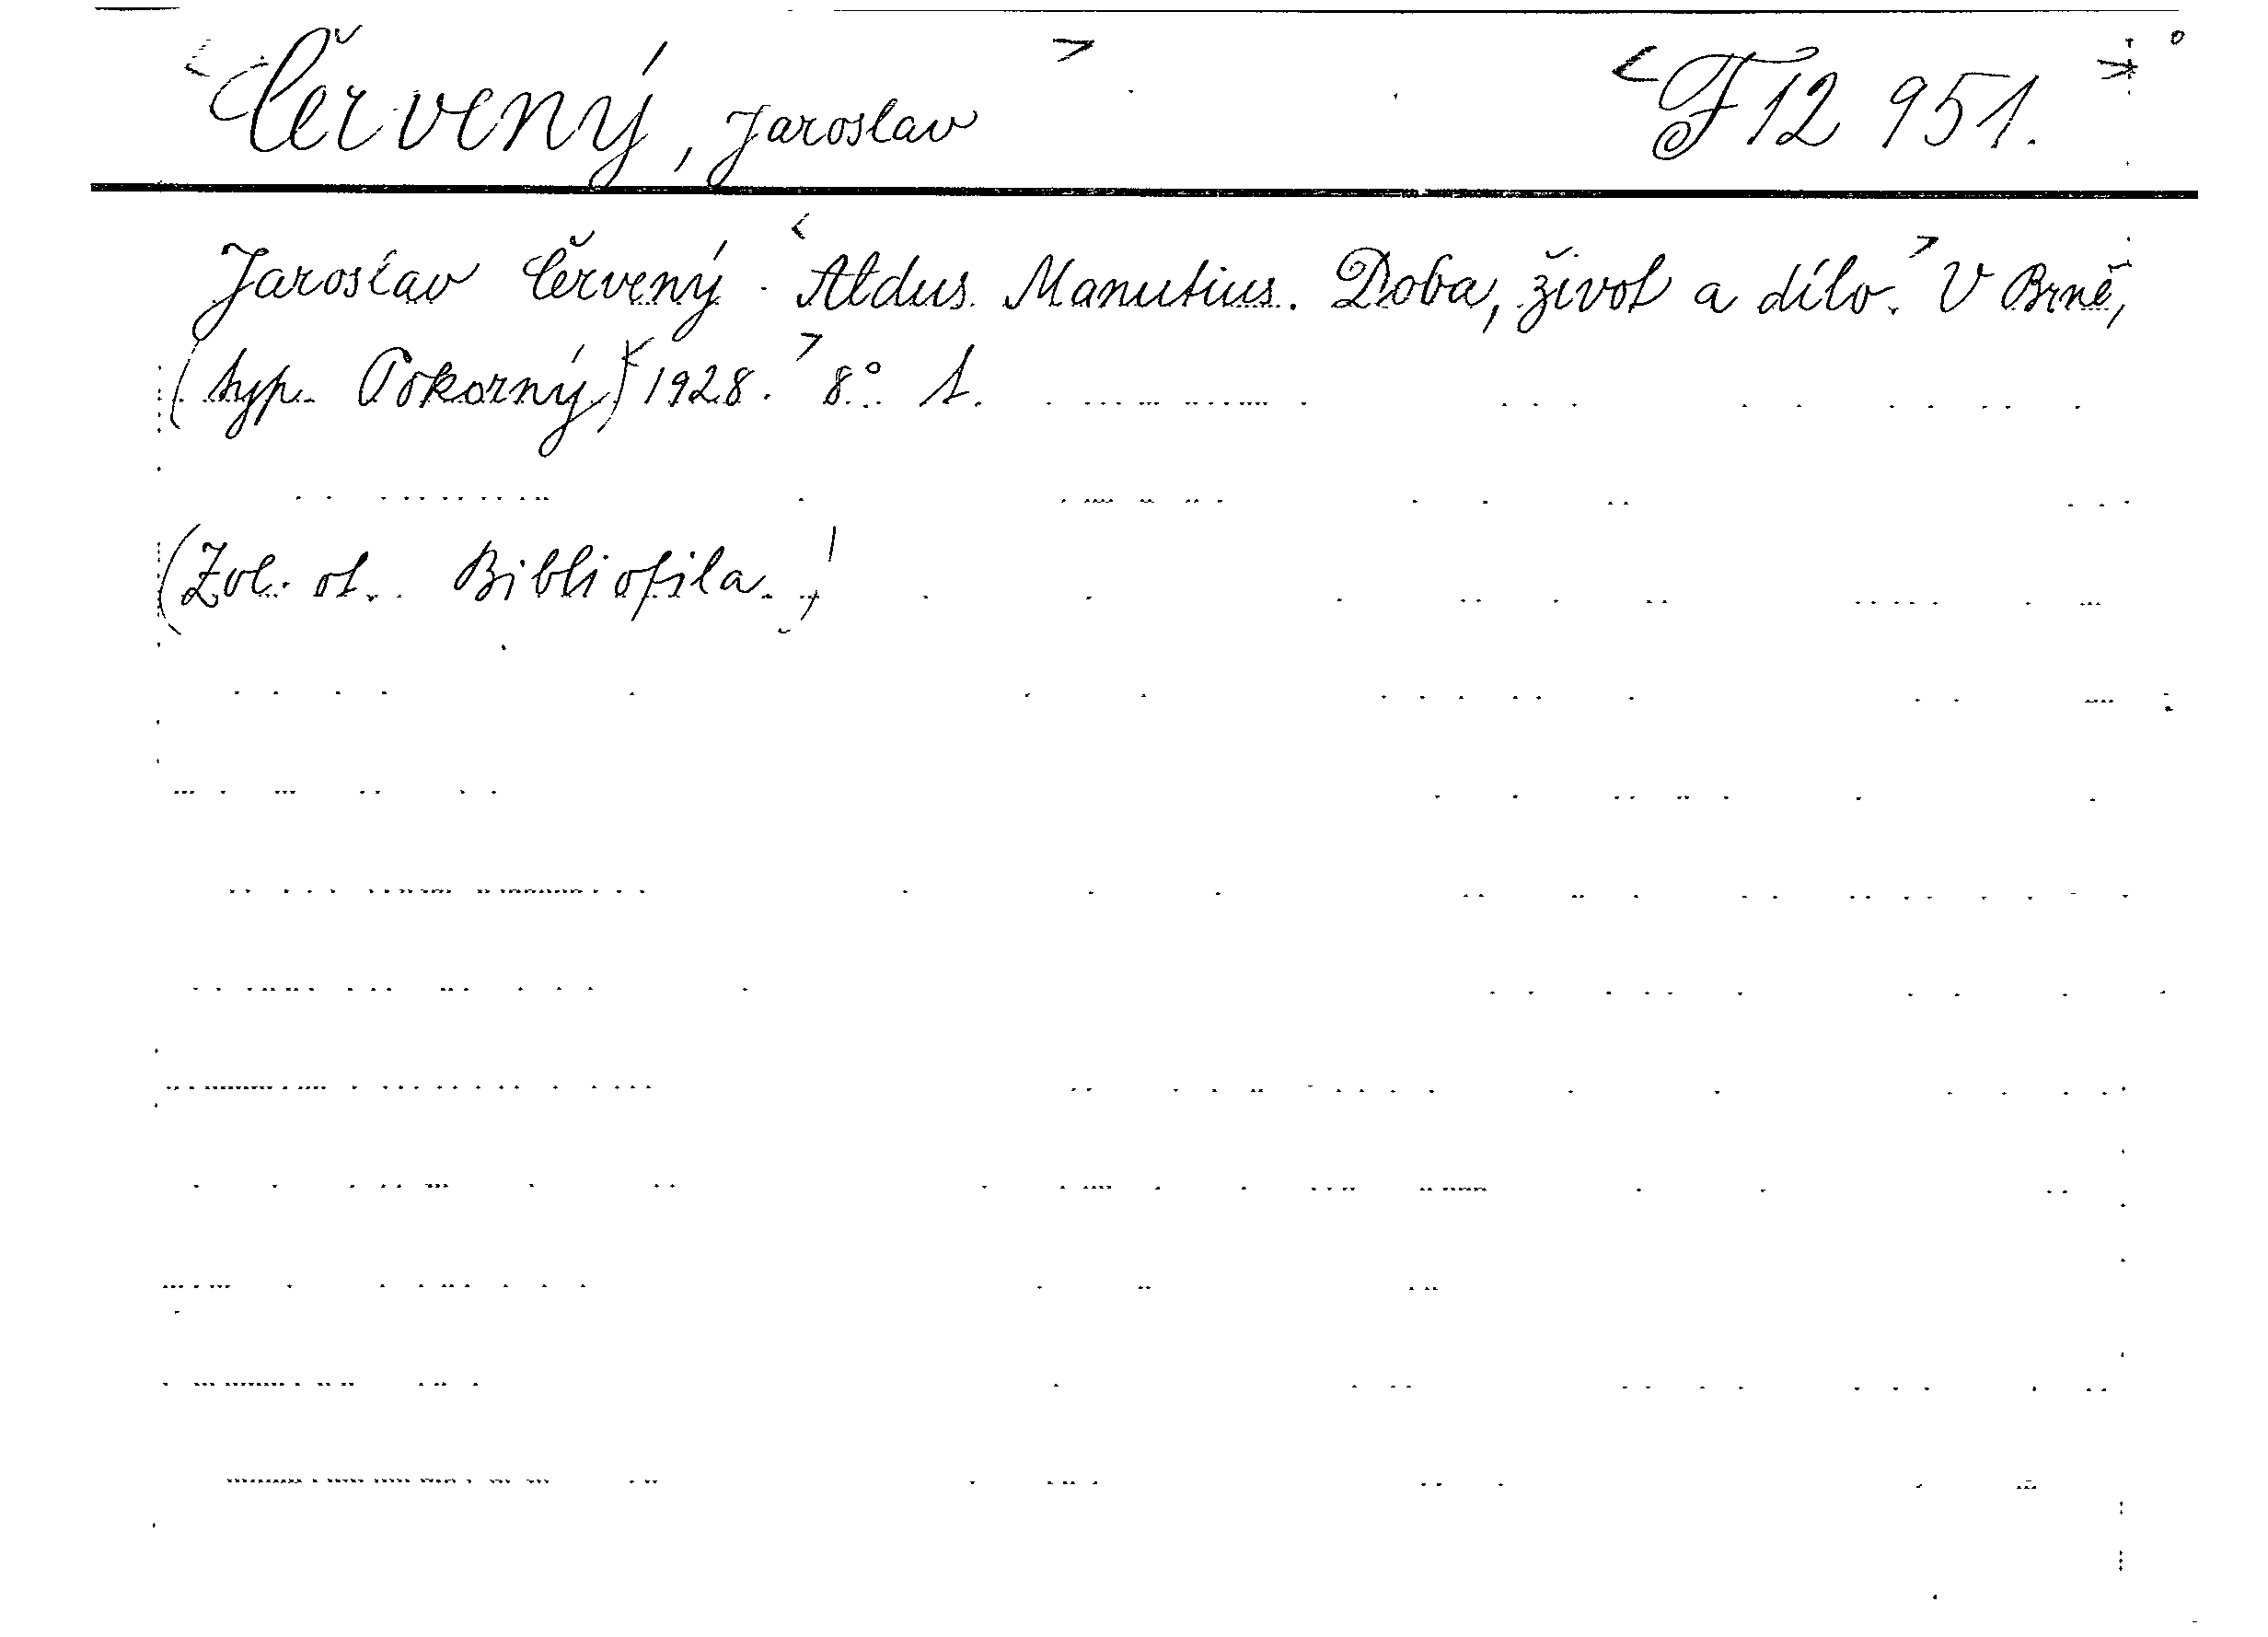 <Červený, Jaroslav> <F 12 951.>
Jaroslav Červený · <Aldus Manutius. Doba, život a dílo.> V Brně,
(typ. Pokorný) <1928.> 8° 1.
(Zvl. ot. Bibliofila.)